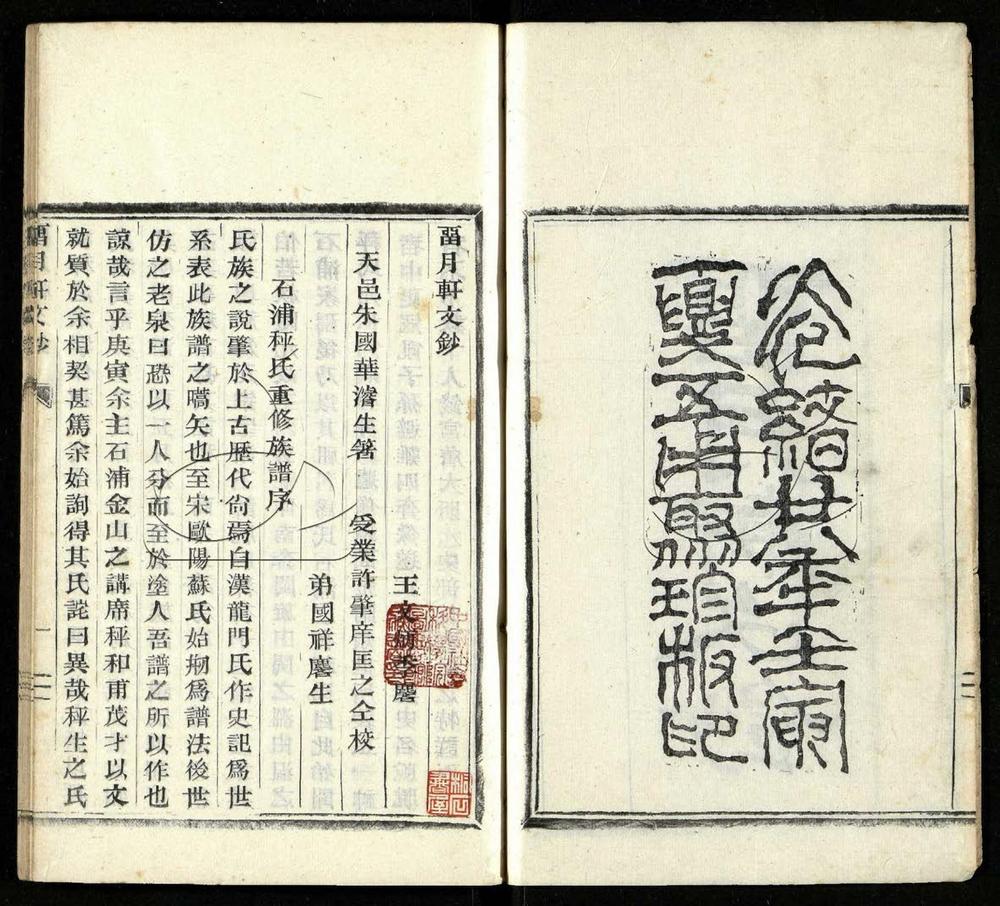 光緒廿八年壬寅
夏五用聚珍板印
畱月軒文鈔
王文季麐
天邑朱國華濬生箸 受業許肇庠匡之仝校
弟國祥麐生
石浦秤氏重修族譜序
氏族之說肇於上古歷代尙焉自漢龍門氏作史記爲世
系表此族譜之嚆矢也至宋歐陽蘇氏始刱爲譜法後世
仿之老泉曰恐以一人分而至於塗人吾譜之所以作也
諒哉言乎庚寅余主石浦金山之講席秤和甫茂才以文
就質於余相契甚篤余始詢得其氏詫曰異哉秤生之氏
畱月軒文鈔
一